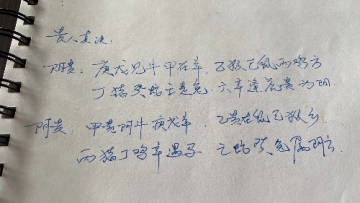 贵人直决
阳贵：庚戊见牛甲在羊 乙猴己鼠丙鸡方
丁猪癸蛇壬是兔 六辛逢虎贵为阳
阴贵：甲贵阴牛庚戊羊 乙贵在鼠己猴乡
丙猪丁鸡辛遇马 壬蛇癸兔属阴方